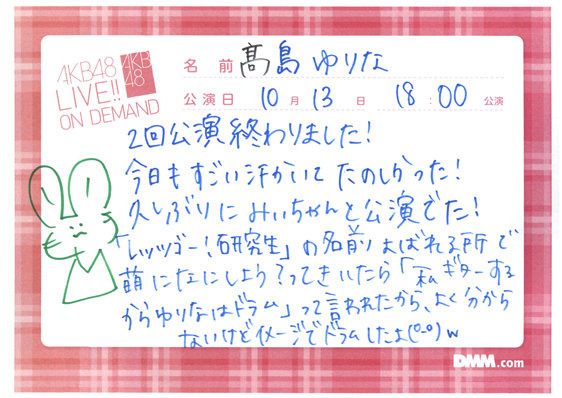 AKB48
LIVE!!
ON DEMAND
AKB
48
名前 髙島 ゆりな
公演日 10月 13日 18:00 公演
2回公演終わりました!
今日もすごい汗かいて たのしかった!
久しぶりにみぃちゃんと公演でた!
「レッツゴー!研究生」の名前よばれる所で
萌になにしよう?ってきいたら「私ギターする
からゆりなはドラム」って言われたから、よく分から
ないけどイメージでドラムしたよ(°-°)w
DMM.com